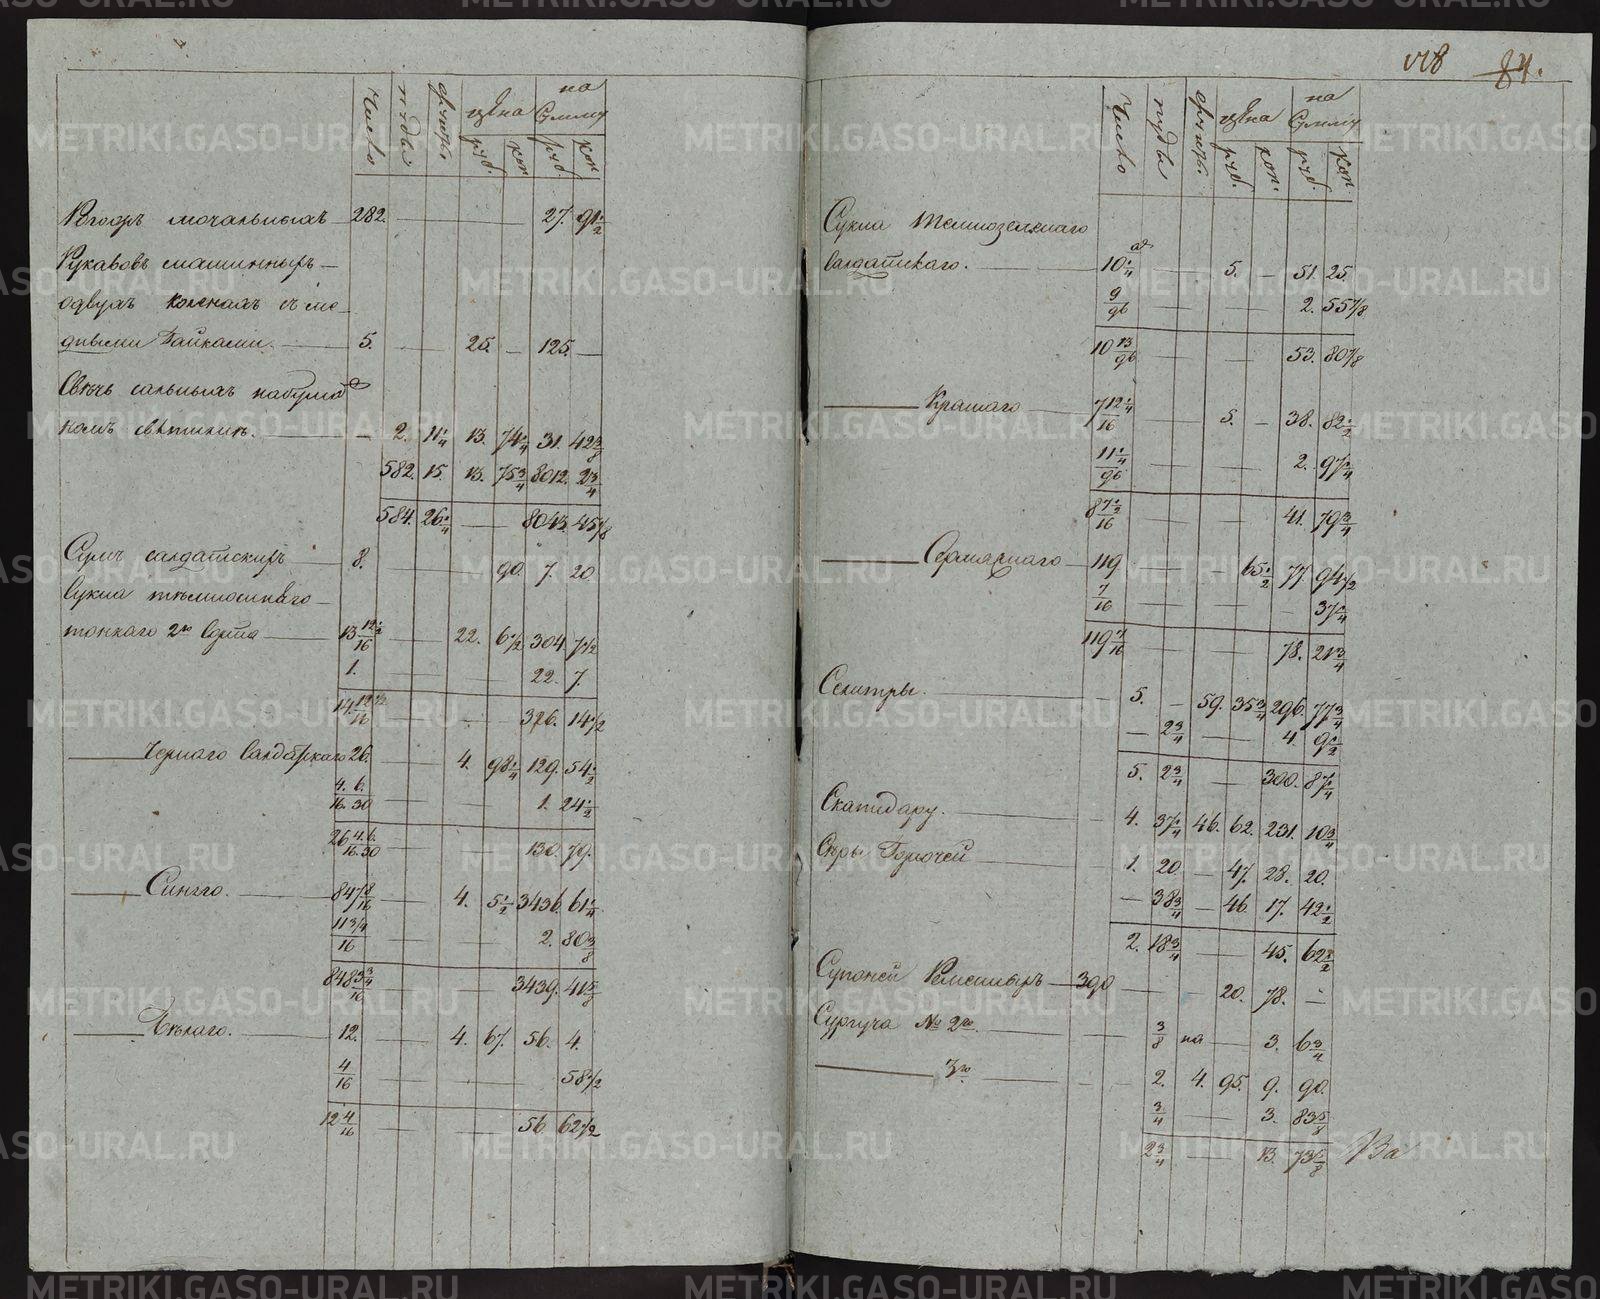 Число пуды фунты цѣна на Сумму
руб. коп руб. коп
Рогожъ мочальныхъ 282. 27. 91 1/2
Рукавовъ машинныхъ
одвухъ коленахъ съ ме-
дными Гайками. 5. 25. 125.
Свѣчь сальныхъ
2. 11 1/4 13. 74 1/4 31. 42 3/8
582. 15. 13. 75 3/4 8012. 2 3/4
584. 26 1/4 8043. 45 1/8
Сумъ салдатскихъ 8. 90. 7. 20.
Сукна темносиняго
тонкаго 2го Сорта 13 12 1/2/16 22. 6 1/2 304. 7 1/2
1. 22. 7.
14 12 1/2/16 326. 14 1/2
Чернаго Салдатскаго 26. 4. 98 1/4 129. 54 1/2
4/16 6/30 1. 24 1/2
26 4/16 6/30 130. 79.
Синяго. 847 8/16 4. 5 1/2 3436. 61 1/4
11 3/4/16 2. 80 3/8
848 3 3/4/16 3439. 41 5/8
Бѣлаго. 12. 4. 67. 56. 4.
4/16 58 1/2
12 4/16 56. 62 1/2
118 84.
Число пуды фунты. цѣна на Сумму
руб. коп. руб. коп
Сукна темнозеленаго
Салдатскаго. 10 1/4 5. 51. 25.
9/96 2. 55 7/8
10 13/96 53. 80 7/8
Краснаго 7 12 1/4/16 5. 38. 82 1/2
11 1/4/96 2. 97 1/4
8 7 1/2/16 41. 79 3/4
Сермяжнаго 119 65 1/2 77. 94 1/2
7/16 37 1/4
119 7/16 78. 21 3/4
Селитры. 5. 59. 35 3/4 296. 77 3/4
2 3/4 4. 9 1/2
5. 2 3/4 300. 87 1/4
Скапидару. 4. 37 1/4 46. 62. 231. 10 3/4
Сѣры Горючей 1. 20 47. 28. 20.
38 3/4 46. 17. 42 1/2
2. 18 3/4 45. 62 1/2
Супоней Ременныхъ 390 20. 78.
Сургуча № 2го. 3/8 на 3. 6 3/4
3го 2. 4. 95. 9. 90.
3/4 3. 83 5/8
2 3/4 13. 73 5/8
За
METRIKI.GASO-URAL.RU